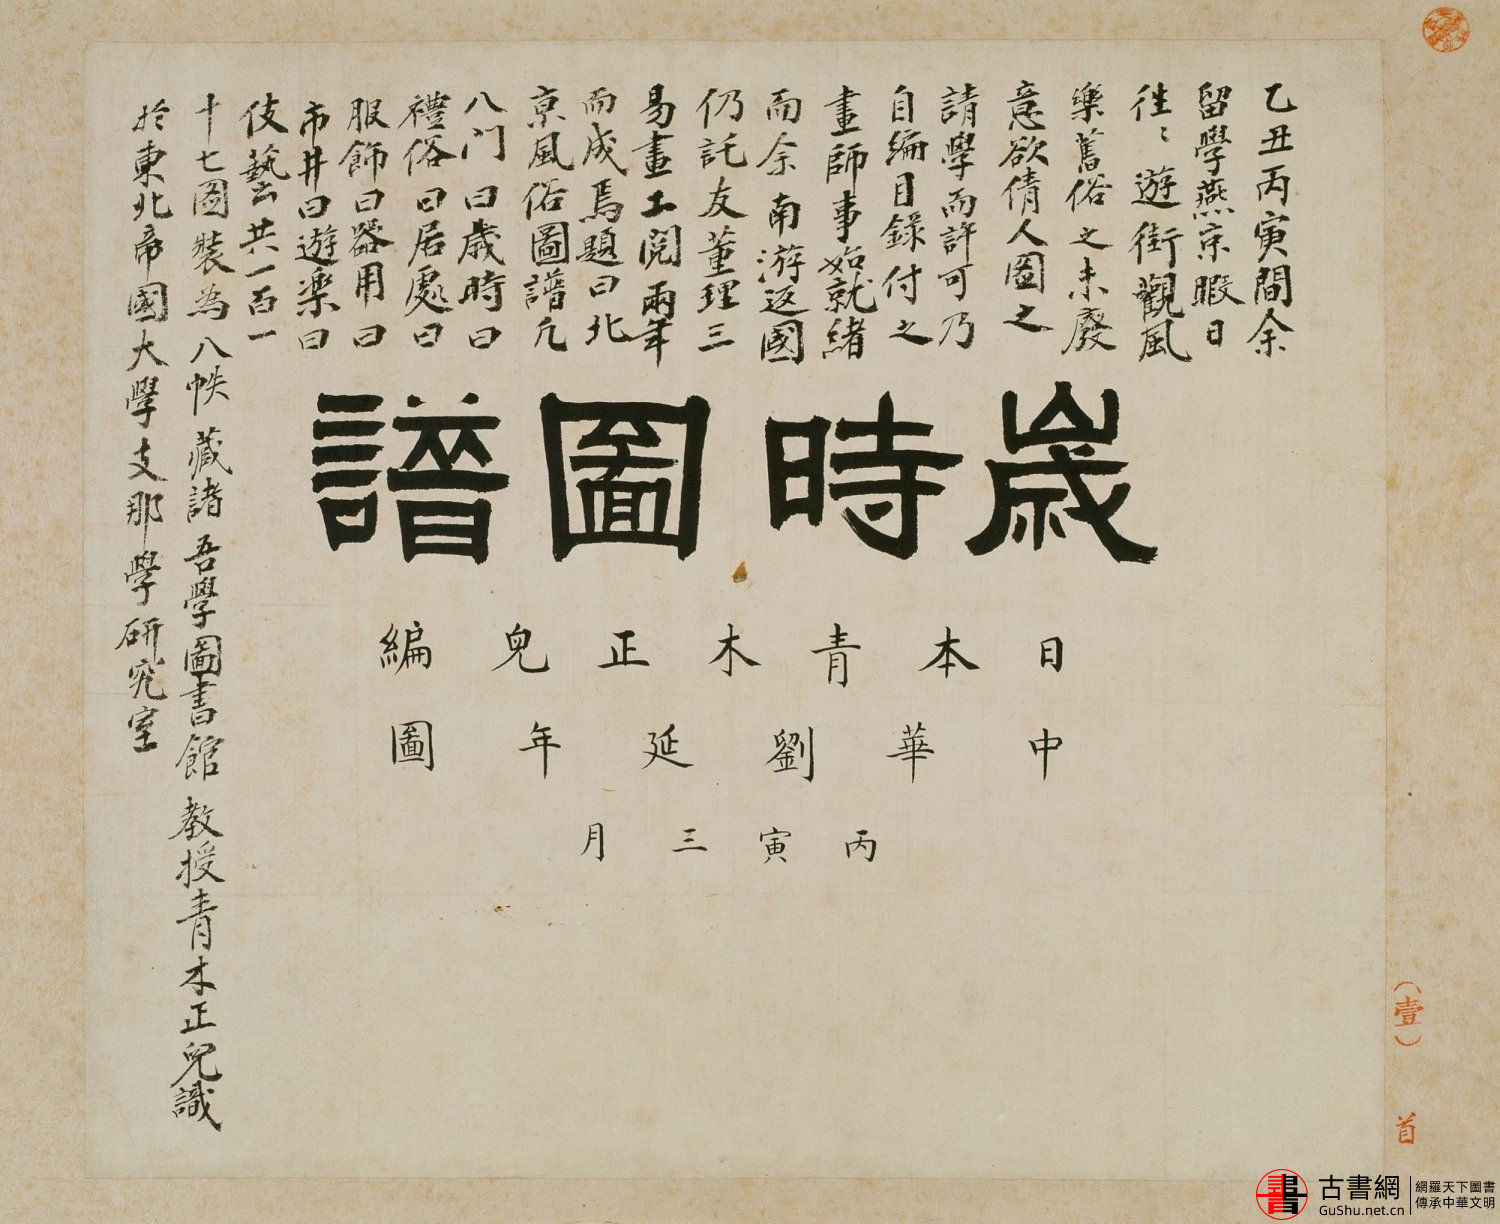 乙丑丙寅間余
留學燕京暇日
徃〻遊街觀風
樂舊俗之未廢
意欲倩人圖之
請學而許可乃
自編目錄付之
畫師事始就緒
而余南游返國
仍託友董理三
易畫工閱兩年
而成焉題曰北
京風俗圖譜凢
八门曰歲時曰
禮俗曰居處曰
服飾曰器用曰
市井曰遊樂曰
伎藝共一百一
十七圖裝為八帙藏諸吾學圖書館教授青木正兒識
於東北帝國大學支那學研究室
歲時圖譜
日本青木正兒編
中華劉延年圖
丙寅三月
（壹）
首
古書網
GuShu.net.cn
網羅天下圖書
傳承中華文明